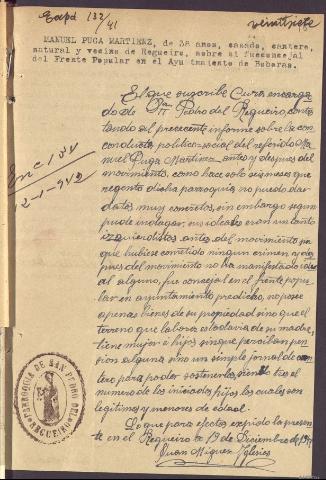 Expd 132/41
veintisiete
MANUEL PUGA MARTINEZ, de 38 años, casado, cantero,
natural y vecino de Regueiro, sobre si fue concejal
del Frente Popular en el Ayuntamiento de Beharas.
El que suscribe Cura encarga
do de Sn Pedro del Regueiro, contes
tando al precedente informe sobre la con
conducta politico-social del referido Ma
nuel Puga Martinez antes y despues del
movimiento, como hace solo seis meses que
regento dicha parroquia no puedo dar
datos muy concretos, sin embargo segun
pude indagar, sus ideales eran un tanto
izquierdistas antes del movimiento sin
que hubiese cometido ningun crimen y des
pues del movimiento no ha manifestado ideal
al alguno, fue concejal en el frente popu
lar en ayuntamiento predicho, no posee
apenas bienes de su propiedad sino que el
terreno que labora es todavia de su madre,
tiene mujer e hijos sin que perciban pen
sion alguna sino un simple jornal de can
tero para poder sostenerlos, siendo tres el
numero de los iniciados hijos, los cuales son
legitimos y menores de edad.
Lo que para efectos expido la presen
te en el Regueiro a 19 de Diciembre de 1941
Juan Miguez Iglesias
PARROQUIA DE SAN PEDRO DEL
REGUEIRO